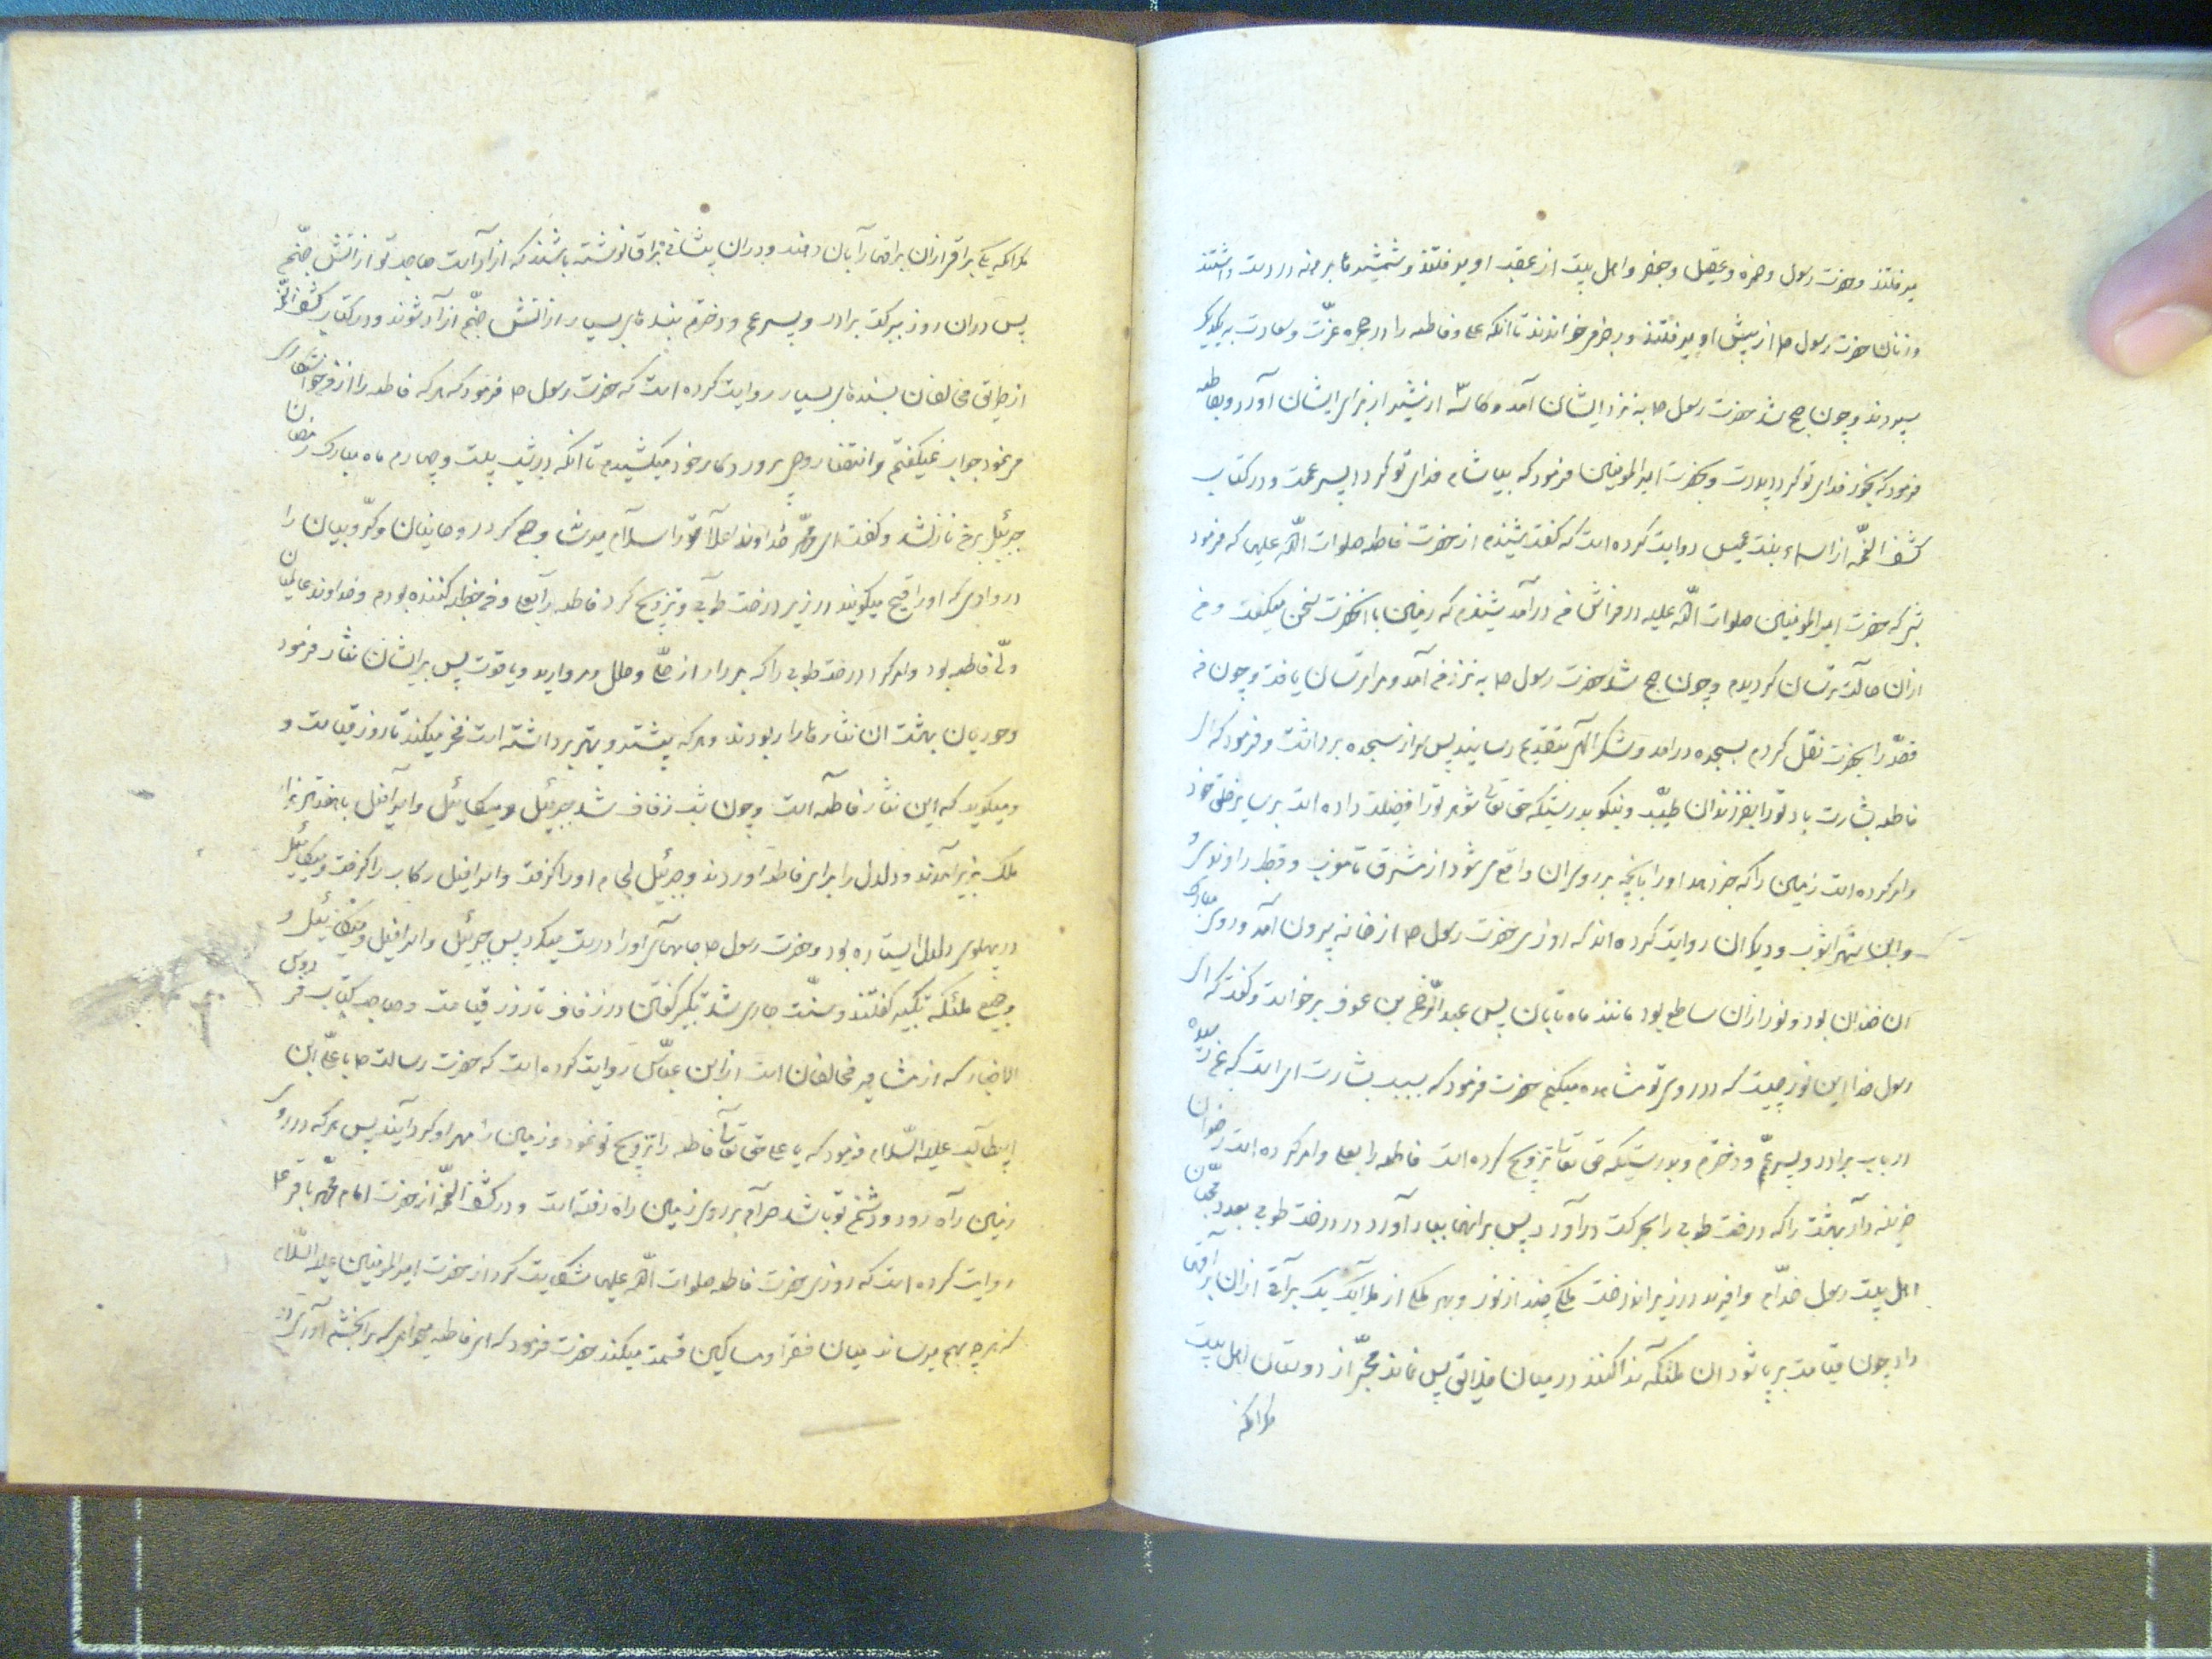 میرفتند و حضرت رسول و حمزه و عقیل و جعفر و اهل بیت از عقب او میرفتند و شمشیرها برهنه در دست داشتند
و زنان حضرت رسول ص از پیش او میرفتند و رجز میخواندند تا آنکه علی و فاطمه را در حجره عزّت و سعادت به یکدیگر
سپردند و چون صبح شد حضرت رسول ص به نزد ایشان آمد و کاسهٔ از شیر از برای ایشان آورد و بفاطمه
فرمود که بخور فدای تو گردد پدرت و بحضرت امیرالمومنین فرمود که بیاشام فدای تو گردد پسر عمت و در کتاب
کشف الغمّه از اسماء بنت عمیس روایت کرده است که گفت شنیدم از حضرت فاطمه صلوات اللّه علیها که فرمود
شبی که حضرت امیرالمومنین صلوات اللّه علیه در فراش من درآمد شنیدم که زمین با آنحضرت سخن میگفت و من
از آن حالت ترسان گردیدم و چون صبح شد حضرت رسول ص به نزد من آمد و مرا ترسان یافت و چون من
قصّه را بحضرت نقل کردم بسجده درامد و شکر الهی بتقدیم رسانید پس سر از سجده برداشت و فرمود که ای
فاطمه بشارت باد تو را بفرزندان طیّب و نیکو بدرستیکه حق تعالی شوهر تو را فضیلت داده است بر سایر خلق خود
و امر کرده است زمین را که خبر دهد او را بآنچه بر روی ان واقع می شود از مشرق تا مغرب و قطب راوندی و
و ابن شهرآشوب و دیگران روایت کرده اند که روزی حضرت رسول ص از خانه بیرون آمد و روی مبارک
آن خندان بود و نور از ان ساطع بود مانند ماه تابان پس عبدالرّحمن بن عوف برخواست و گفت که ای
رسول خدا این نور چیست که در روی تو مشاهده میکنم حضرت فرمود که بسبب بشارت است که بمن رسیده
در باب برادر و پسر عمّ و دخترم و بدرستیکه حق تعالی تزویج کرده است فاطمه را بعلی و امر کرده است رضوان
خزینه دار بهشت را که درخت طوبی را بحرکت درآورد پس براتها ببار آورد در درخت طوبی بعدد محبّان
اهل بیت رسول خدا و افرید در زیر ان درخت ملکی چند از نور و بهر ملکی از ملایک یک براتی از ان براتها
داد چون قیامت برپا شود ان ملئکه ندا کنند در میان خلایق پس نماند محبّی از دوستان اهل بیت
مگر آنکه
مگر آنکه یک برات از ان براتها را بآن دهند و در ان بیشانی براق نوشته باشند که ازاد است صاحب تو از اتش جهنّم
پس در ان روز ببرکت برادر و پسر عم و دخترم بنده های بسیار از اتش جهنّم ازاد شوند و در کتاب کشف الغمّه
از طرق مخالفان بسندهای بسیار روایت کرده است که حضرت رسول ص فرمود که هر که فاطمه را از من خواستگاری
می نمود جواب نمیگفتم و انتظار وحی پروردگار خود میکشیدم تا آنکه در شب بیست و چهارم ماه مبارک رمضان
جبرئیل بر من نازل شد و گفت ای محمّد خداوند اعلا تو را سلام میرساند و جمع کرد روحانیان و کرّوبیان را
در وادی که او را افیح میگویند در زیر درخت طوبی و تزویج کرد فاطمه را بعلی و من خطبه کننده بودم و خداوند عالمیان
ولّی فاطمه بود و امر کرد درخت طوبی را که بردارد از حلّی و حلل و مروارید و یاقوت پس بر ایشان نثار فرمود
و حوریان بهشت ان نثارها را ربودند و هر که بیشتر و بهتر برداشته است فخر میکند تا روز قیامت و
و میگوید که این نثار فاطمه است و چون شب زفاف شد جبرئیل و میکائیل و اسرافیل با هفتاد هزار
ملک بزیر آمدند و دلدل را برای فاطمه آوردند و جبرئیل لجام او را گرفت و اسرافیل رکاب را گرفت و میکائیل
در پهلوی دلدل ایستاده بود و حضرت رسول ص جامهای او را درست میکرد پس جبرئیل و اسرافیل و میکائیل و
و جمیع ملئکه تکبیر گفتند و سنّت جاری شد تکبیر گفتن در زفاف تا روز قیامت و صاحب کتاب فردوس
الاخبار که از مشاهیر مخالفان است از ابن عبّاس روایت کرده است که حضرت رسالت ص با علی ابن
ابیطالب علیه السّلام فرمود که یا علی حق تعالی فاطمه را تزویج تو نمود و زمین را مهر او گردانید پس هر که در روی
زمین راه رود و دشمن تو باشد حرام بر روی زمین راه رفته است و در کشف الغمّه از حضرت امام محمّد باقر ع
روایت کرده است که روزی حضرت فاطمه صلوات اللّه علیها شکایت کرد از حضرت امیرالمومنین علیه السّلام
که هر چه بهم میرساند میان فقرا و مساکین قسمت میکند حضرت فرمود که ای فاطمه میخواهی که مرا بخشم آوری در